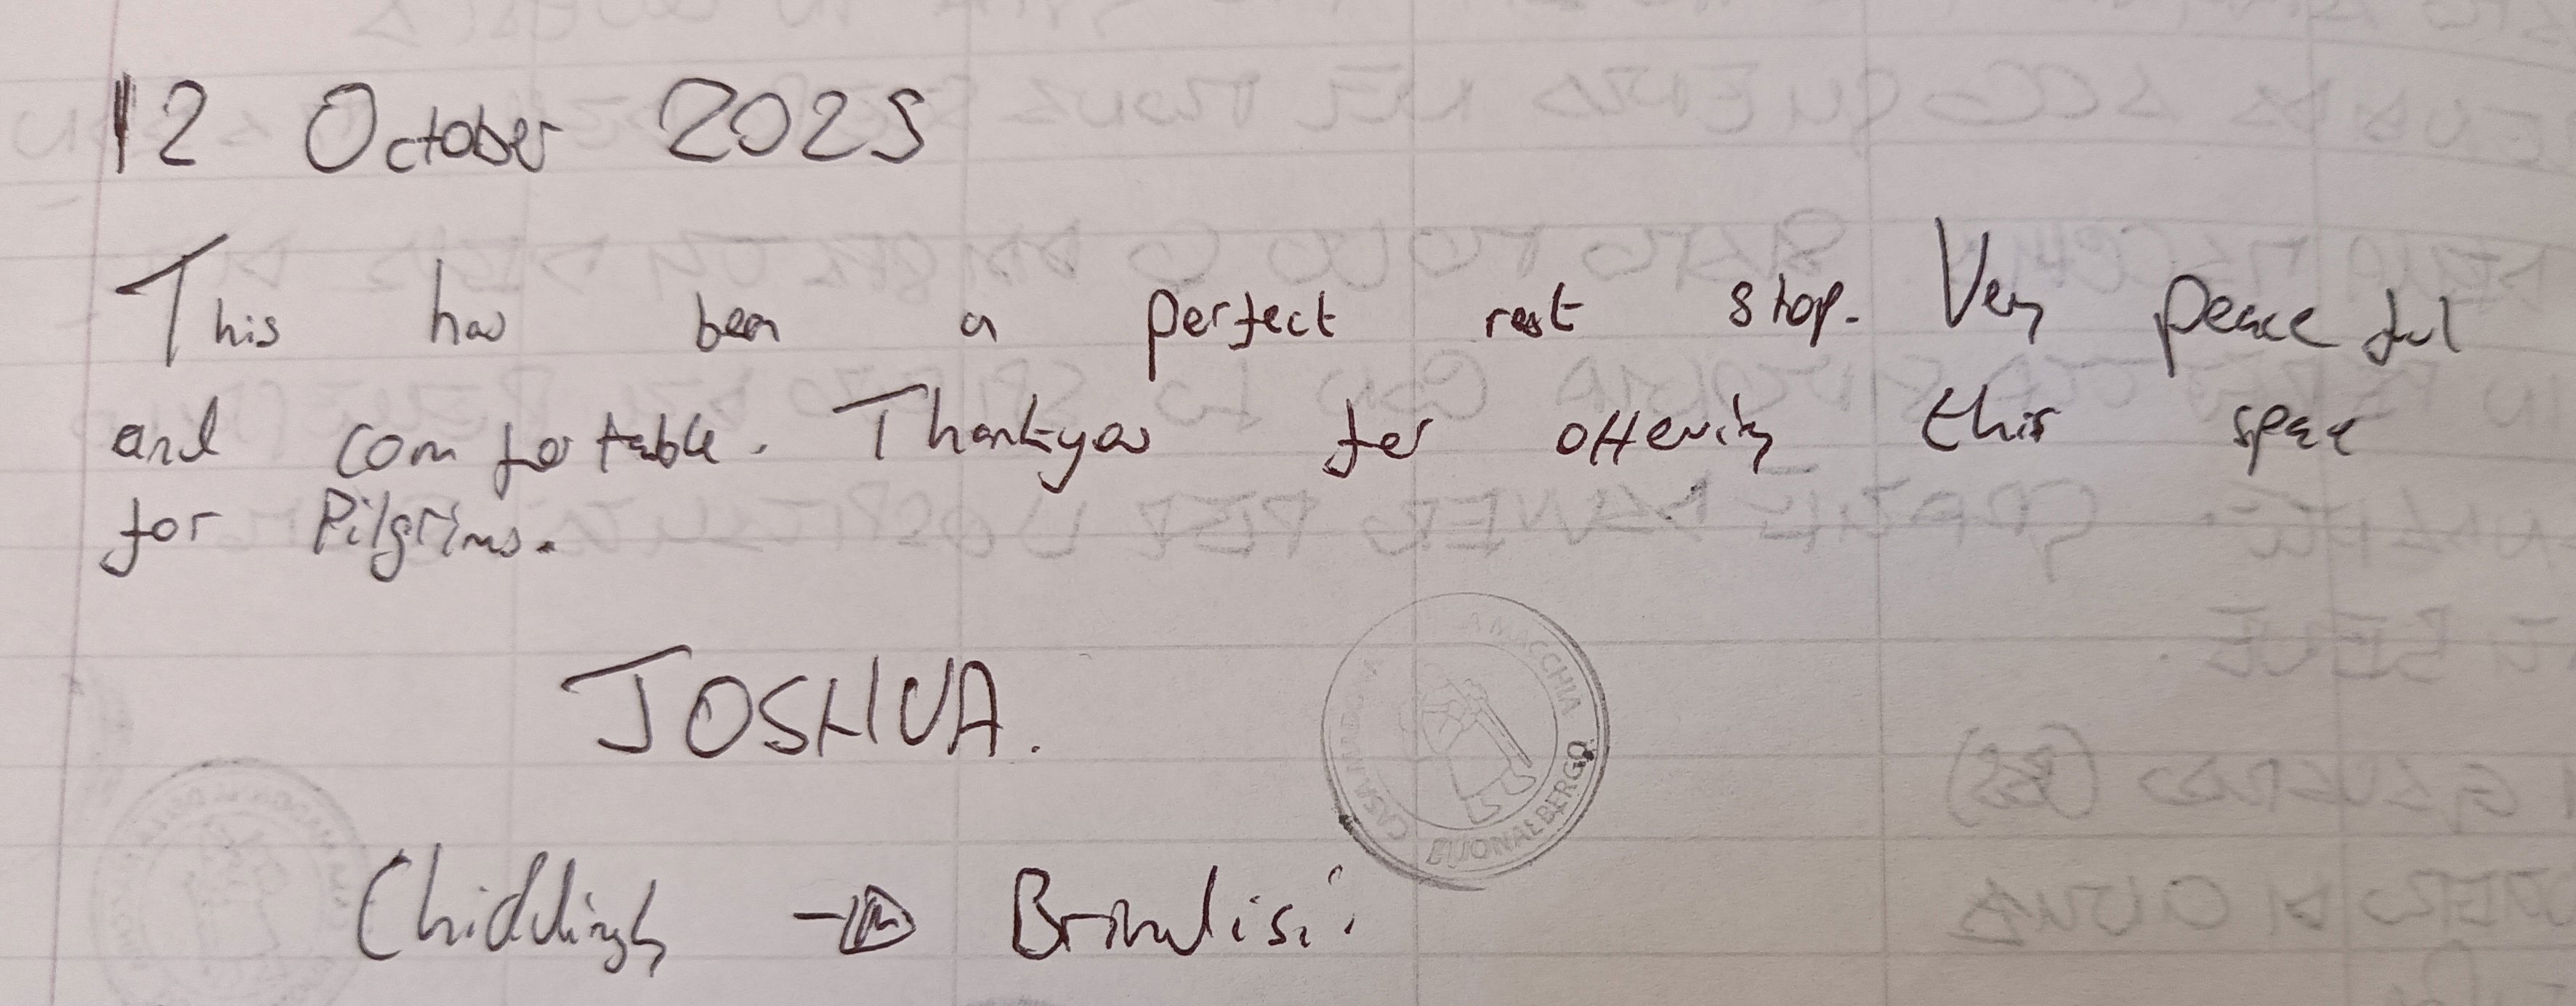 12 October 2025
This has been a perfect rest stop. Very peaceful
and comfortable. Thankyou for offering this space
for Pilgrims.
JOSHUA.
CASA MADONNA A MACCHIA
BUONALBERGO
→ Brindisi.